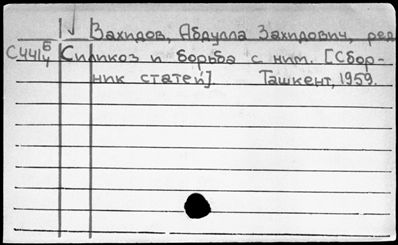 Вахидов, Абдулла Захидович, ред
С441 Б/4 Силикоз и борьба с ним. [Сбор-
ник статей] Ташкент, 1959.